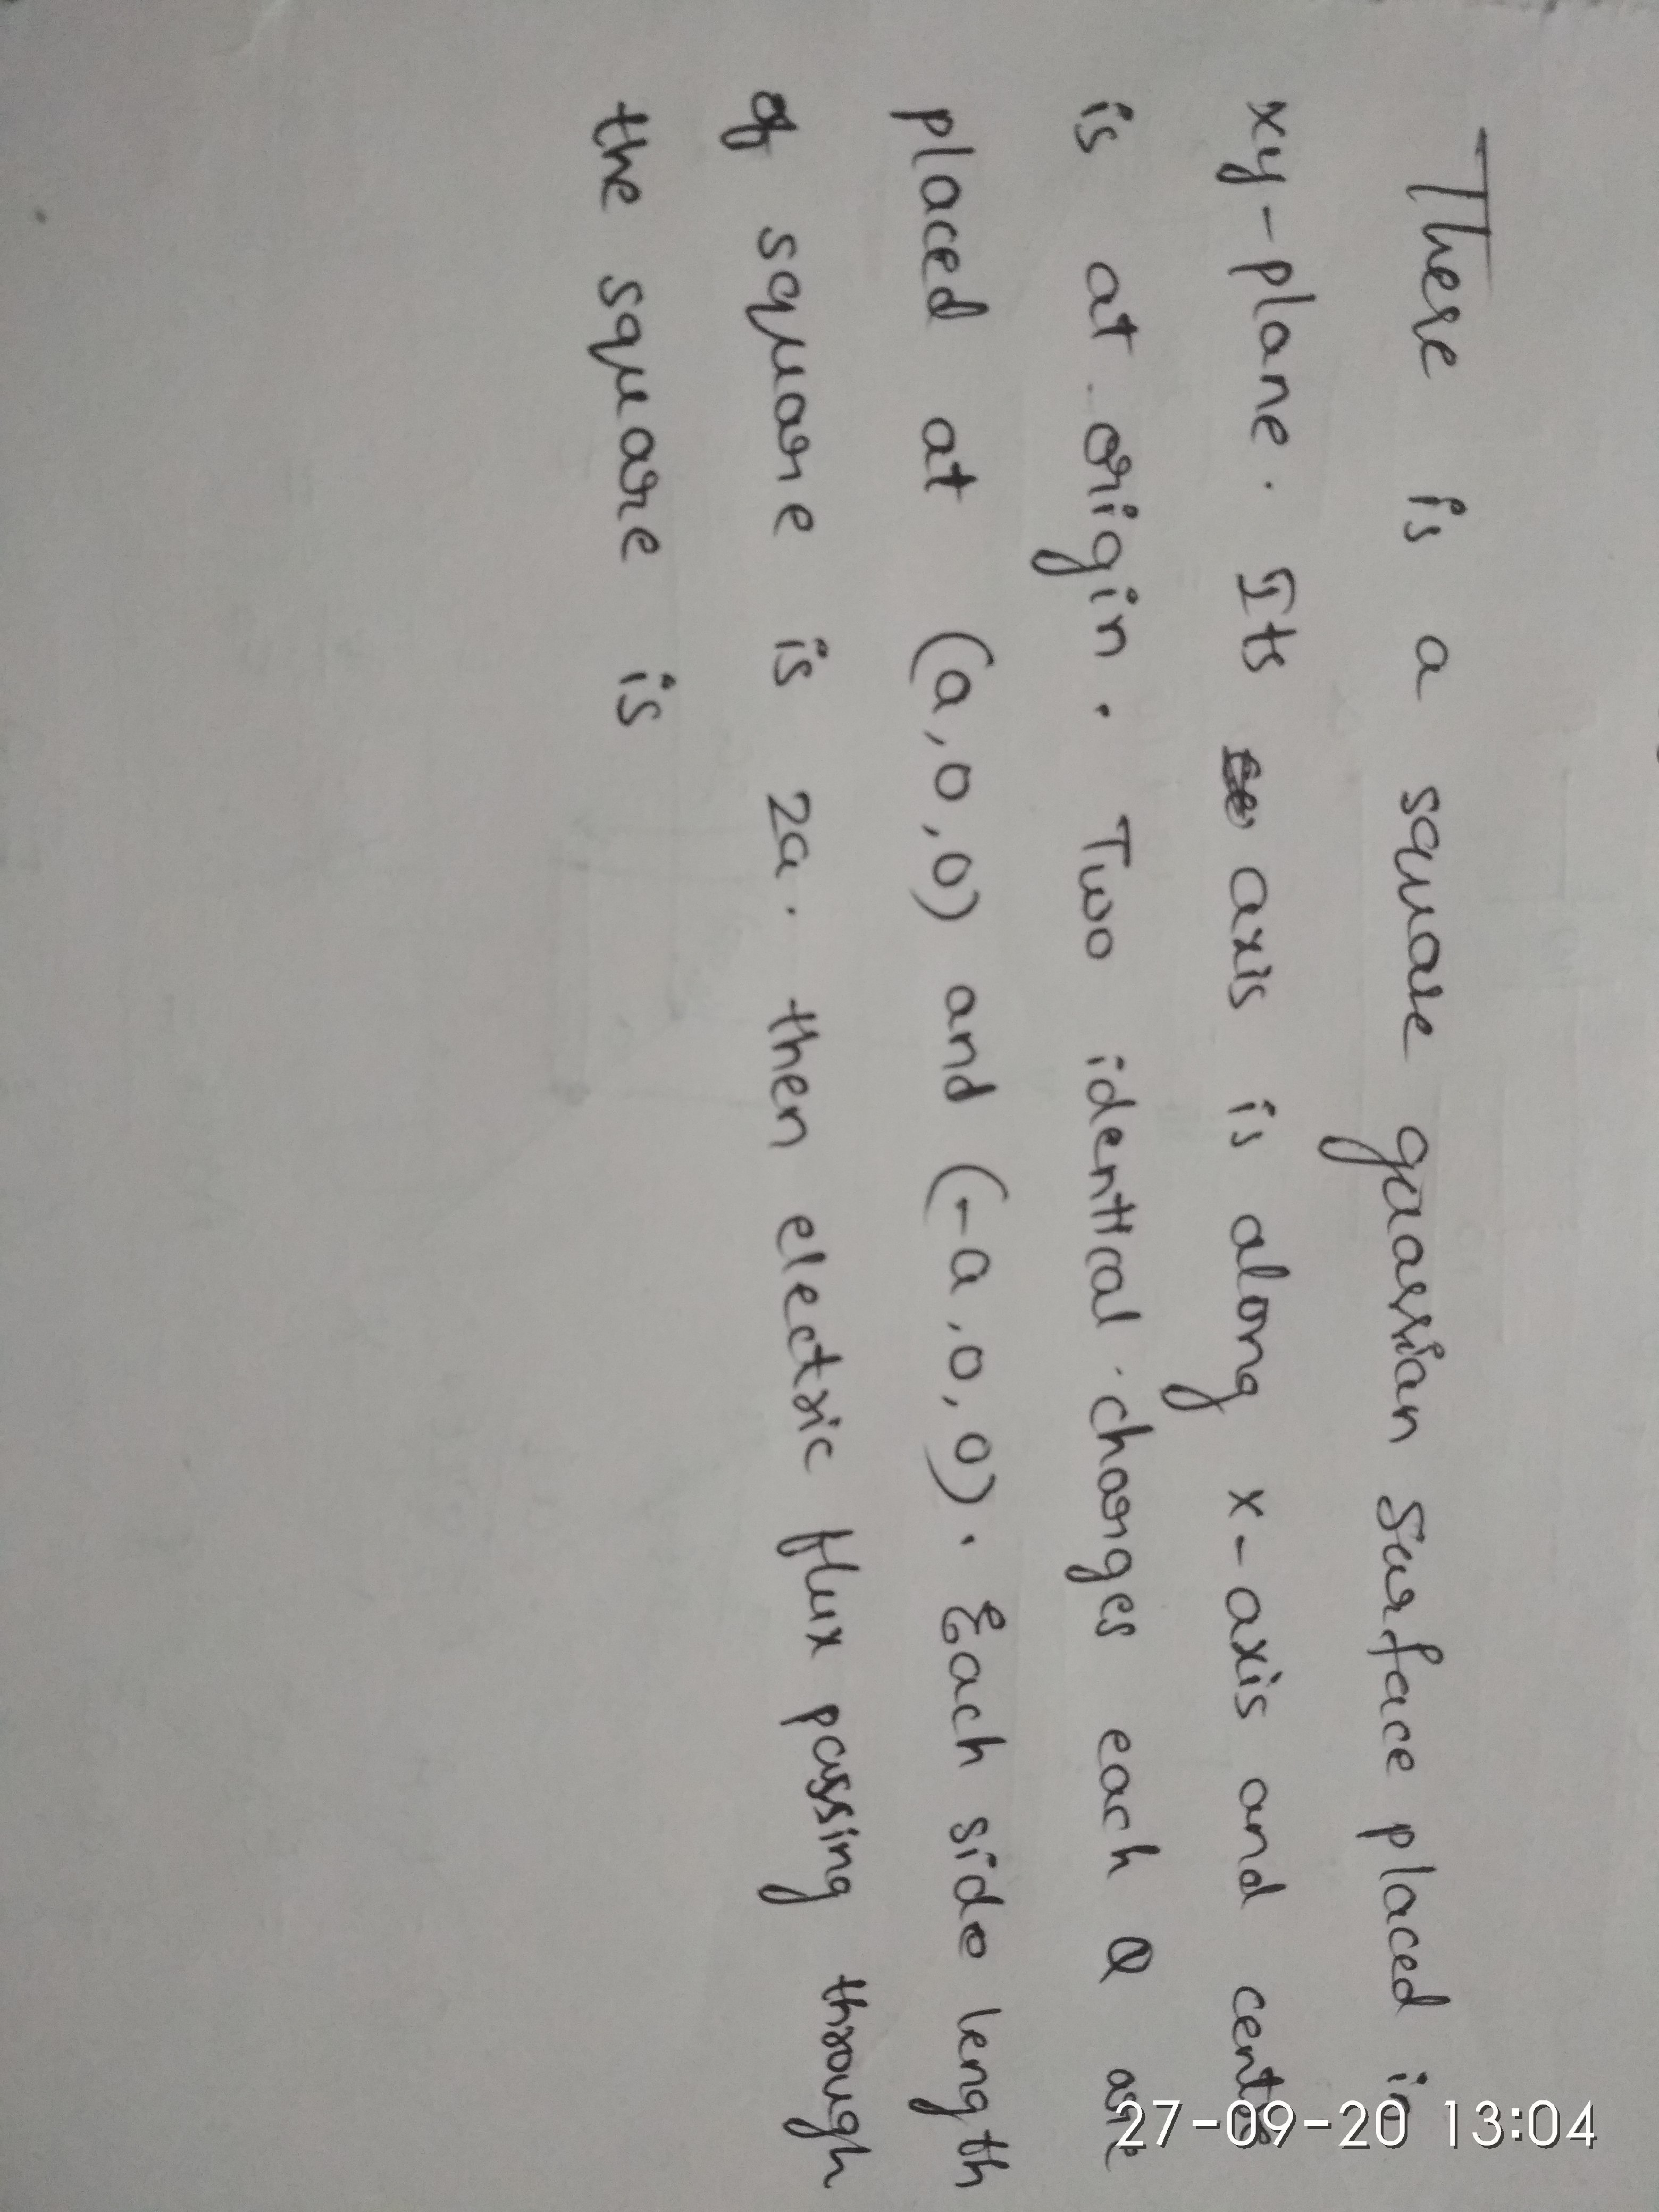 There is a square gaussian surface placed in
xy-plane. Its axis is along x-axis and centre
is at origin. Two identical charges each Q are
placed at (a,0,0) and (-a,0,0). Each side length
of square is 2a. then electric flux passing through
the square is
27-09-20 13:04